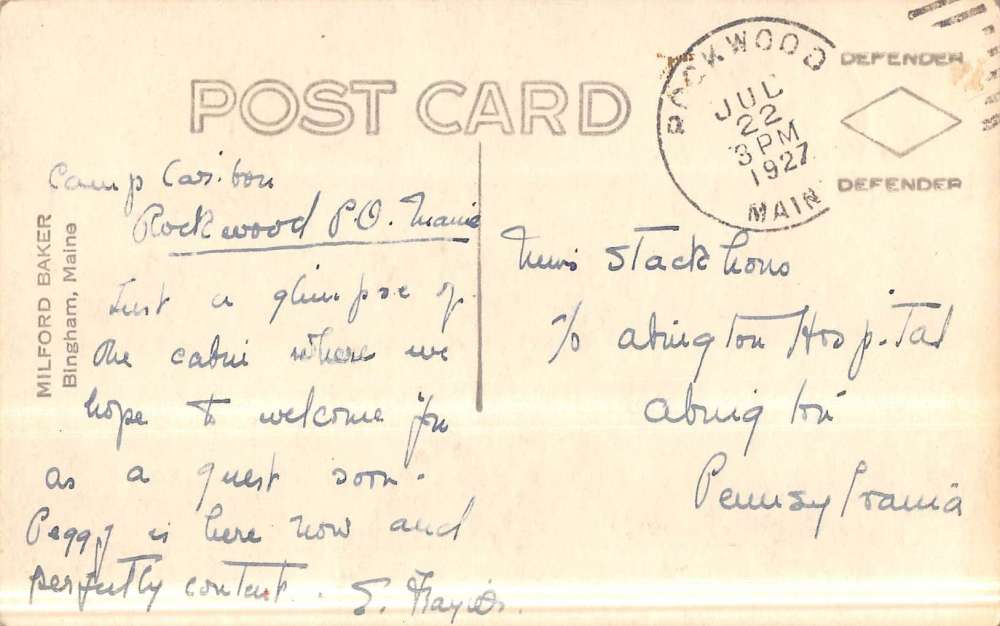 POST CARD
ROCKWOOD
JUL
22
3 PM
1927
MAIN
DEFENDER
DEFENDER
MILFORD BAKER
Bingham, Maine
Camp Caribou
Rockwood P.O. Maine
Just a glimpse of
the cabin where we
hope to welcome you
as a guest soon.
Peggy is here now and
perfectly content.
Miss Stackhous
c/o Abington Hospital
Abington
Pennsylvania